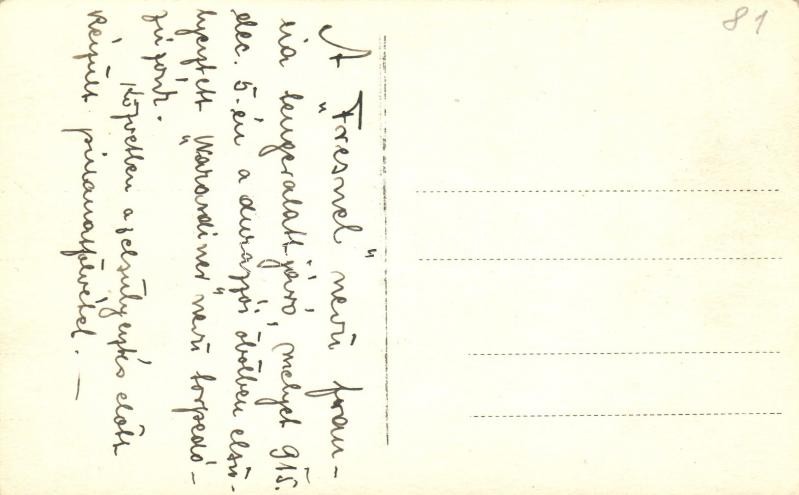 A "Fresnel" nevű fran-
cia tengeralattjáró, melyet 915.
dec. 5-én a durazzói öbölben elsü-
lyeztett "Warasdiner" nevű torpedó-
zúzónk.
Közvetlen az elsülyeztés előtt
készült pillanatfelvétel. —
81